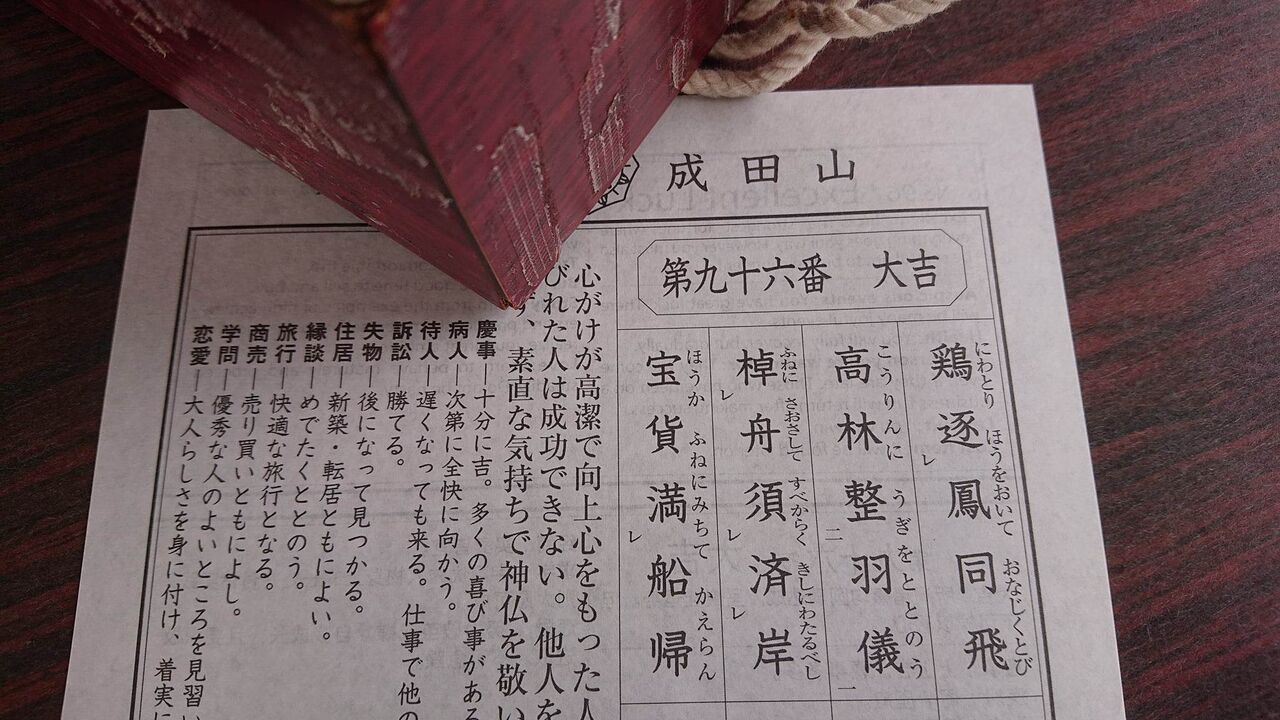 成田山
第九十六番　大吉
鶏逐鳳同飛
にわとり　ほうをおいて　おなじくとび
レ
高林整羽儀
こうりんに　うぎをととのう
二　一
棹舟須済岸
ふねに　さおさして　すべからく　きしにわたるべし
レ　レ　レ
宝貨満船帰
ほうか　ふねにみちて　かえらん
レ
心がけが高潔で向上心をもった人
びれた人は成功できない。他人を
、素直な気持ちで神仏を敬い
慶事―十分に吉。多くの喜び事がある
病人―次第に全快に向かう。
待人―遅くなっても来る。仕事で他の
訴訟―勝てる。
失物―後になって見つかる。
住居―新築・転居ともによい。
縁談―めでたくととのう。
旅行―快適な旅行となる。
商売―売り買いともによし。
学問―優秀な人のよいところを見習い
恋愛―大人らしさを身に付け、着実に